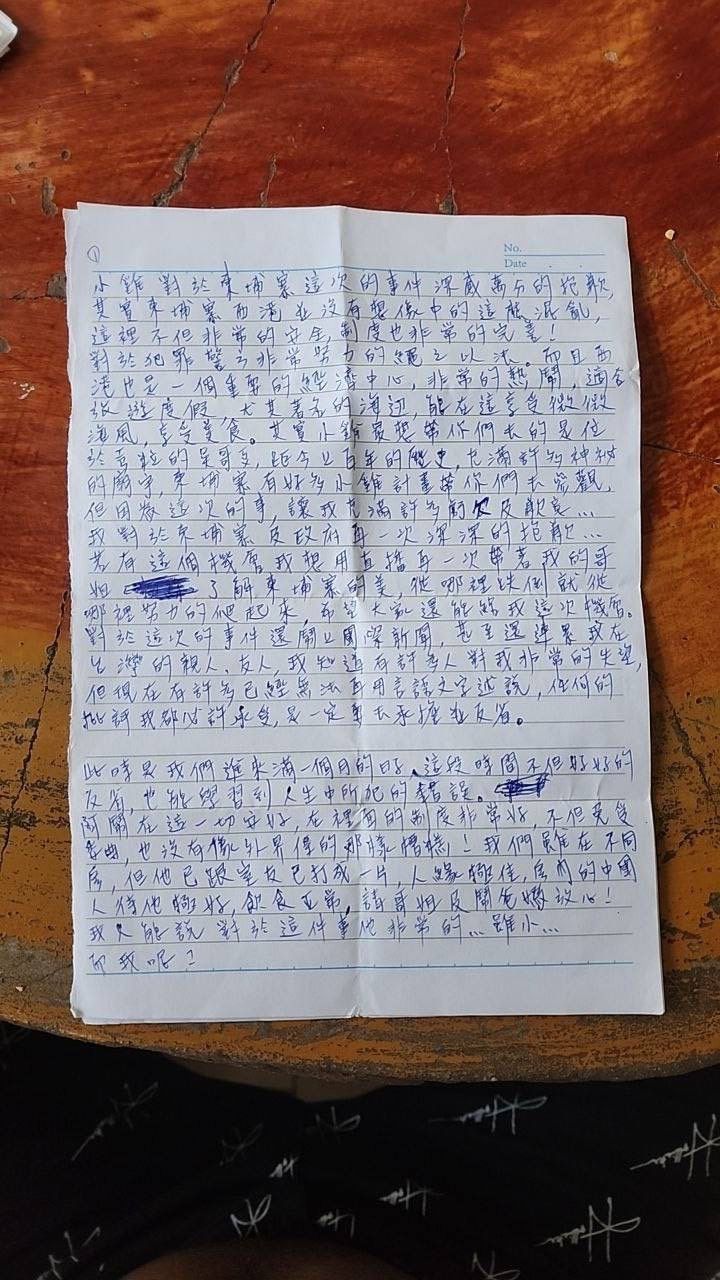 ①
No.
Date
小雞對於柬埔寨這次的事件深感萬分的抱歉,
其實柬埔寨西港並沒有想像中的這麼混亂,
這裡不但非常的安全,制度也非常的完善!
對於犯罪警方非常努力的繩之以法。而且西
港也是一個重要的經濟中心,非常的熱鬧,適合
放遊度假,尤其著名的海边,能在這享受微微
海風,享受美食。其實小雞最想帶你們去的是位
於吾粒的吳哥文,距今上百年的歷史,充滿許多神秘
的廟宇,柬埔寨有好多小雞計畫帶你們去參觀,
但因為這次的事,讓我充滿許多的欠及歉哀...
我對於柬埔寨及政府再一次深深的抱歉...
若有這個機會我想用直播再一次帶著我的哥
姐 了解柬埔寨的美,從哪裡跌倒就從
哪裡努力的爬起來,希望大家還能給我這次機會。
對於這次的事件還鬧上國際新聞,甚至還連累我在
台灣的親人、友人,我知道有許多人對我非常的失望,
但現在有許多已經無法再用言語文字述說,任何的
批評我都必許承受,是一定要去承擔並反省。
此時是我們進來滿一個月的日子,這段時間不但好好的
反省,也能學習到人生中所犯的錯誤。
阿鬧在這一切安好,在裡面的制度非常好,不但免受
委曲,也沒有像外界傳的那樣糟糕!我們雖在不同
房,但他已跟室友已打成一片,人緣極佳,房內的中國
人待他極好,飲食正常,請哥姐及鬧爸媽放心!
我只能說 對於這件事他非常的...雖小...
而我呢?